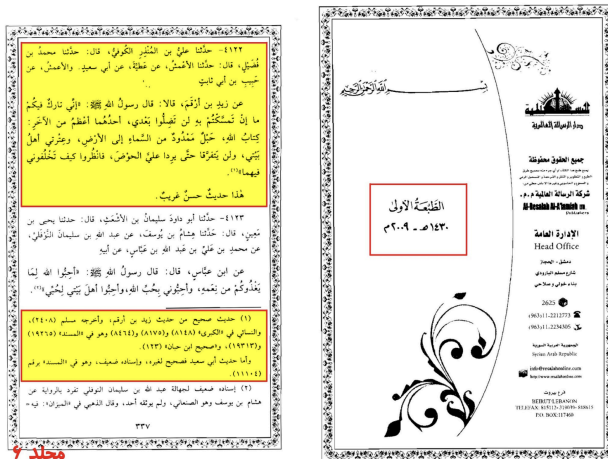 ٤١٢٢- حدَّثنا عليُّ بن المُنْذِرِ الكُوفيُّ، قال: حدَّثنا محمدُ بن
فُضَيْلٍ، قال: حدَّثنا الأَعْمشُ، عن عَطِيَّةَ، عن أبي سعيدٍ. والأعمشُ، عن
حَبيبِ بن أبي ثابتٍ
عن زيدِ بن أَرْقَمَ، قالا: قال رسولُ الله ﷺ: «إنِّي تاركٌ فيكُمْ
ما إنْ تَمسَّكْتُمْ بهِ لن تَضِلُّوا بَعْدي، أحدُهُما أعظمُ من الآخَرِ:
كِتابُ اللهِ، حَبْلٌ مَمْدُودٌ من السَّماءِ إلى الأرْضِ، وعِتْرتي أهلُ
بَيْتي، ولن يَتفرَّقا حتَّى يرِدا عليَّ الحَوْضَ، فانْظُروا كيف تَخْلُفُوني
فيهما»(١).
هٰذا حديثٌ حسنٌ غريبٌ.
٤١٢٣- حدَّثنا أبو داودَ سليمانُ بن الأشْعَثِ، قال: حدثنا يحيى بن
مَعِينٍ، قال: حدَّثنا هِشامُ بن يُوسفَ، عن عبد الله بن سليمانَ النَّوْفَليِّ،
عن محمدِ بن عليِّ بن عَبد الله بن عبَّاسٍ، عن أبيهِ
عن ابنِ عبَّاسٍ، قال: قال رسولُ الله ﷺ: «أَحِبُّوا اللهَ لِمَا
يَغْذُوكُمْ من نِعَمِهِ، وأَحِبُّوني بِحُبِّ اللهِ، وأحِبُّوا أهلَ بَيْتي لِحُبِّي»(٢).
(١) حديث صحيح من حديث زيد بن أرقم، وأخرجه مسلم (٢٤٠٨)،
والنسائي في «الكبرى» (٨١٤٨) و(٨١٧٥) و(٨٤٦٤) وهو في «المسند» (١٩٢٦٥)
و(١٩٣١٣)، و«صحيح ابن حبان» (١٢٣).
وأما حديث أبي سعيد فصحيح لغيره، وإسناده ضعيف، وهو في «المسند» برقم
(١١١٠٤).
(٢) إسناده ضعيف لجهالة عبد الله بن سليمان النوفلي تفرد بالرواية عن
هشام بن يوسف وهو الصنعاني، ولم يوثقه أحد، وقال الذهبي في «الميزان»: فيه=
٣٣٧
مجلد ٦
بسم الله الرحمن الرحيم
الطَّبعَة الأولى
١٤٣٠هـ - ٢٠٠٩م
دار الرسالة العالمية
جميع الحقوق محفوظة
شركة الرسالة العالمية م.م.
Al-Resalah Al-A'lamiah
Publishers
الإدارة العامة
Head Office
دمشق - الحجاز
شارع مسلم البارودي
بناء خولي و صلاحي
2625
(963)11-2212773
(963)11-2234305
الجمهورية العربية السورية
Syrian Arab Republic
info@resalahonline.com
http://www.resalahonline.com
فرع بيروت
BEIRUT/LEBANON
P.O. BOX:117460